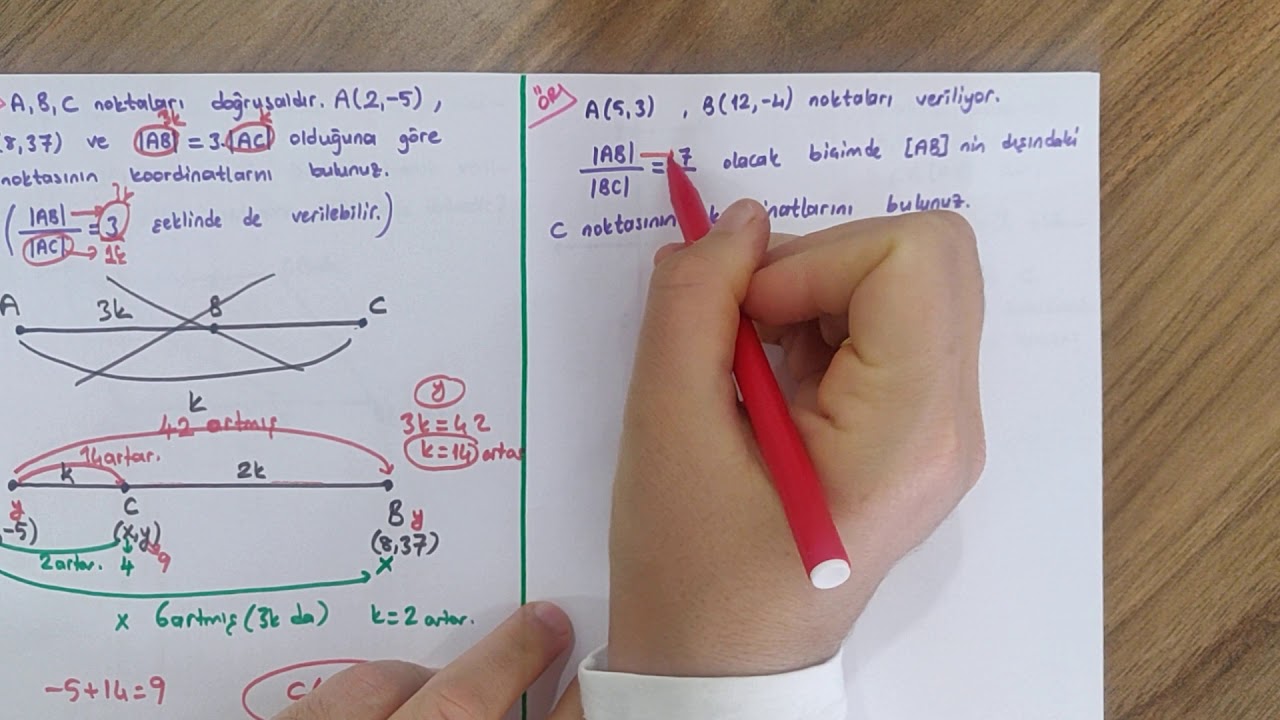 A, B, C noktaları doğrusaldır. A(2,-5),
3k k
(8,37) ve |AB| = 3.|AC| olduğuna göre
noktasının koordinatlarını bulunuz.
3k
(|AB|/|AC| = 3 şeklinde de verilebilir.)
1k
A 3k B C
k
42 artmış
14 artar.
k 2k
y
3k=42
k=14 artar
y C B y
-5) (x,y) (8,37)
2 artar. 4 9 x
x 6 artmış (3k da) k=2 artar.
-5+14=9
C(
ÖR
A(5,3) , B(12,-4) noktaları veriliyor.
|AB|/|BC| = 7 olacak biçimde [AB] nin dışındaki
C noktasının koordinatlarını bulunuz.